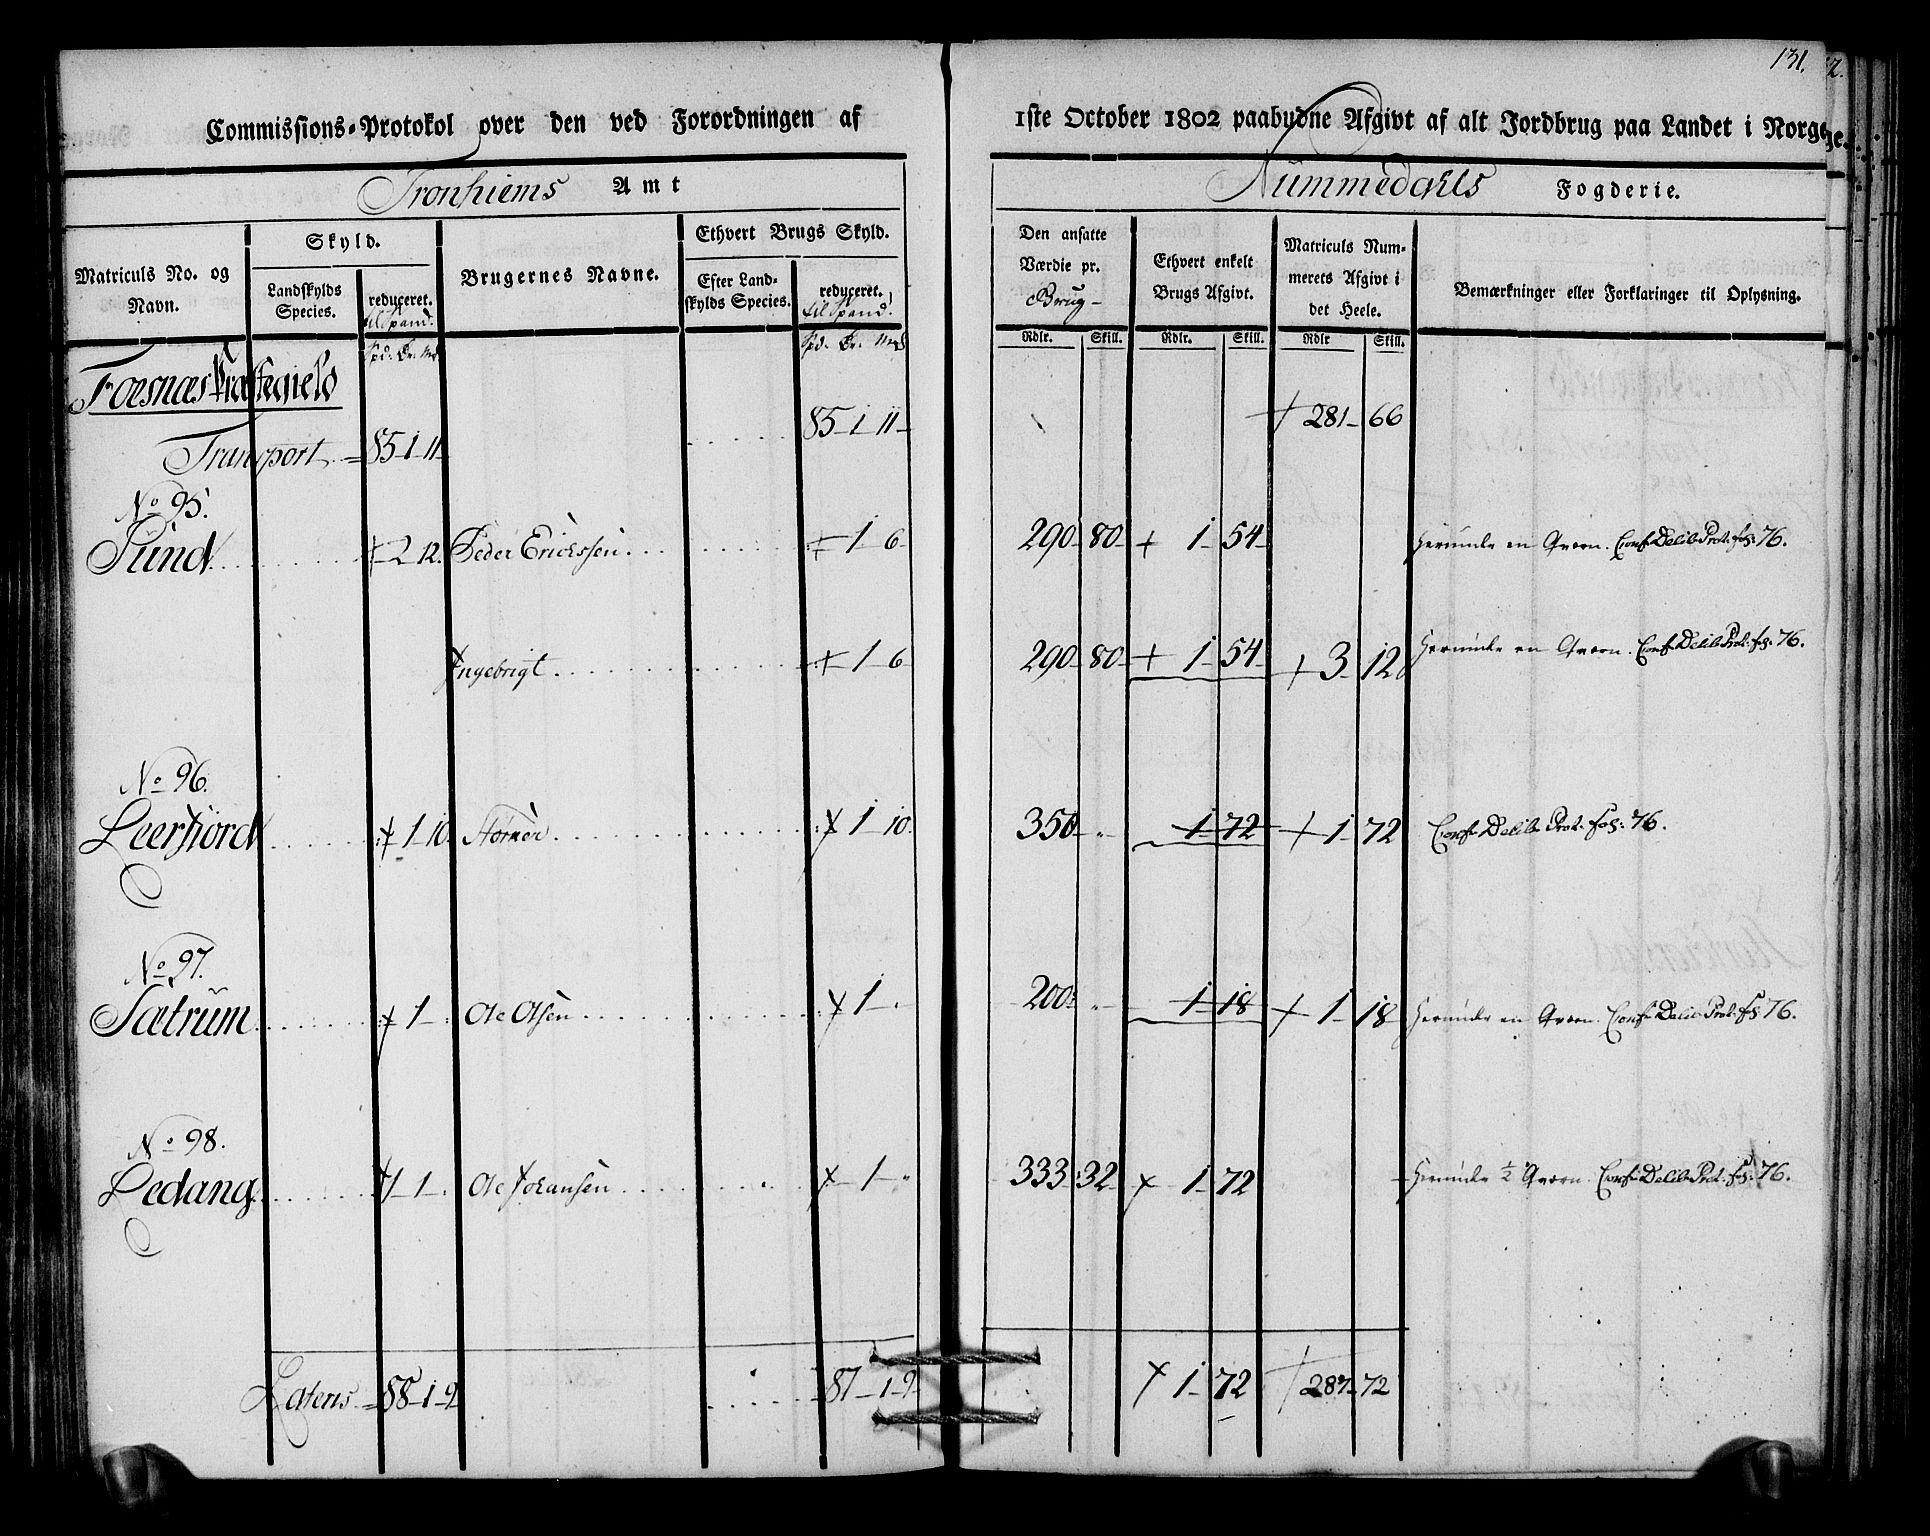 131.
Commissions-Protokol over den ved Forordningen af 1ste October 1802 paabudne Afgivt af alt Jordbrug paa Landet i Norge.
Tronhiems Amt
Nummedahls Fogderie.
Matriculs No. og Navn.
Skyld.
Landskylds Species.
reduceret. til Spand.
Brugernes Navne.
Ethvert Brugs Skyld.
Efter Landskylds Species.
reduceret. til Spand.
Den ansatte Værdie pr. Brug
Ethvert enkelt Brugs Afgivt.
Matriculs Nummerets Afgivt i det Heele.
Bemærkninger eller Forklaringer til Oplysning.
Spd. Ør. Mk Spd. Ør. Mk Rdlr. Skill. Rdlr. Skill. Rdlr Skill.
Foesnæs Præstegield
Transport 85-1-11 85-1-11 281-66
No 95.
Sund + 2 12. Peder Ericksen + 1 6 290 80 + 1 54 Herunder en Qværn. Conf. Delib. Prot. fol: 76.
Ingebrigt + 1 6 290 80 + 1 54 + 3 12 Herunder en Qværn. Conf. Delib. Prot. fol: 76.
No 96.
Leerfiord + 1 10 Størker + 1 10. 350 " 1 72 + 1 72 Conf. Delib. Prot. fol: 76.
No 97.
Sætrum + 1 Ole Olsen + 1 " 200 " 1 18 + 1 18 Herunder en Qværn. Conf. Delib. Prot. fol: 76.
No 98.
Ledang 1 1 Ole Johansen + 1 " 333 32 + 1 72 Herunder ½ Qværn. Conf. Delib. Prot. fol: 76.
Lateris 88-1-9 87-1-9 + 1 72 287-72